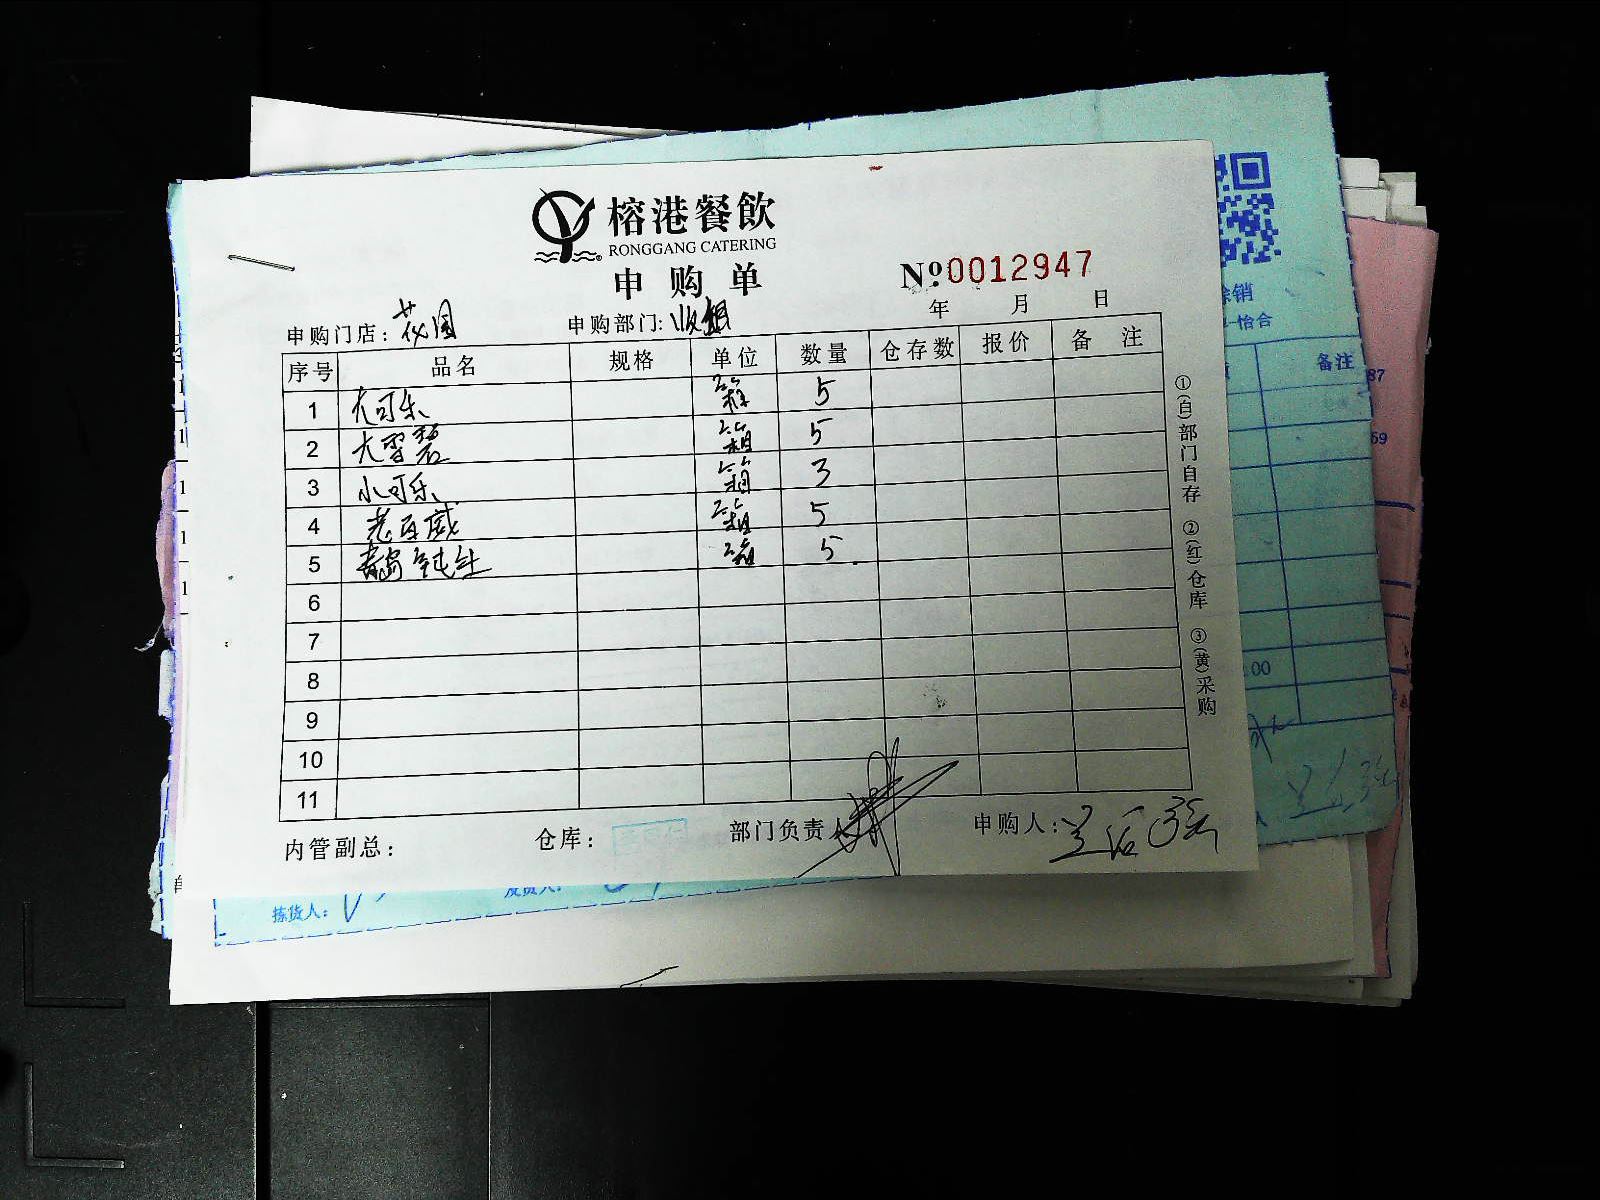 榕港餐飲
RONGGANG CATERING
申购单
№ 0012947
年 月 日
申购门店：花园 申购部门:
序号 品名 规格 单位 数量 仓存数 报价 备注
1 大可乐 箱 5
2 大雪碧 箱 5
3 小可乐 箱 3
4 老百威 箱 5
5 青岛纯生 箱 5
6
7
8
9
10
11
内管副总： 仓库： 部门负责人 申购人：
①(白)部门自存 ②(红)仓库 ③(黄)采购
销
怡合
备注
87
59
00
拣货人：